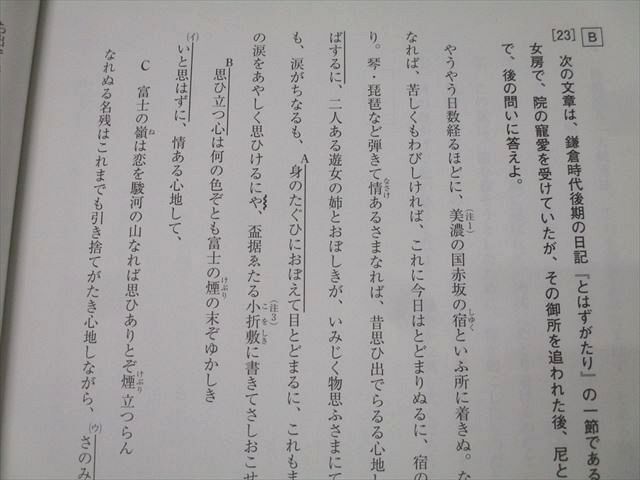 B
[23]
次の文章は、鎌倉時代後期の日記『とはずがたり』の一節である
女房で、院の寵愛を受けていたが、その御所を追われた後、尼と
で、後の問いに答えよ。
やうやう日数経るほどに、美濃の国赤坂の宿といふ所に着きぬ。な
(注1)
しゆく
なれば、苦しくもわびしければ、これに今日はとどまりぬるに、宿の
り。琴・琵琶など弾きて情あるさまなれば、昔思ひ出でらるる心地し
なさけ
ばするに、二人ある遊女の姉とおぼしきが、いみじく物思ふさまにて
も、涙がちなるも、身のたぐひにおぼえて目とどまるに、これもま
A
の涙をあやしく思ひけるにや、盃据ゑたる小折敷に書きてさしおこせ
(注3)
こをしき
B
思ひ立つ心は何の色ぞとも富士の煙の末ぞゆかしき
けぶり
(イ)
いと思はずに、情ある心地して、
C
富士の嶺は恋を駿河の山なれば思ひありとぞ煙立つらん
ね
けぶり
なれぬる名残はこれまでも引き捨てがたき心地しながら、さのみ
(ウ)